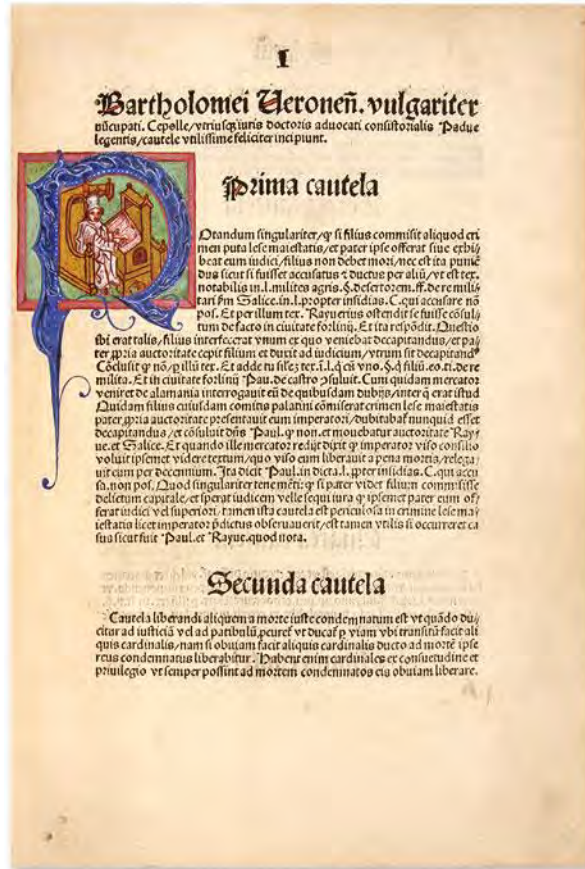 I
Bartholomei Ueroneñ. vulgariter
nūcupati. Cepolle/vtriusqʒ iuris doctoris aduocati consistorialis Padue
legentis/cautele vtilissime feliciter incipiunt.
Prima cautela
Notandum singulariter/ꝙ si filius commisit aliquod cri
men puta lese maiestatis/et pater ipse offerat siue exhi/
beat eum iudici/filius non debet mori/nec est ita punie
dus sicut si fuisset accusatus ⁊ ductus per aliū/vt est tex.
notabilis in.l.milites agris.§.desertorem.ff.de re mili/
tari ẜm Salice.in.l.propter insidias.C.qui accusare nō
pos. Et per illum tex. Rayuerius ostendit se fuisse cōsul/
tum de facto in ciuitate forliuij. Et ita respōdit. Questio
sibi erat talis/filius interfecerat vnum ex quo veniebat decapitandus/et pa/
ter ꝓpria auctoritate cepit filium et duxit ad iudicium/vtrum sit decapitandꝰ
Cōclusit ꝙ nō/ꝑ illū tex. Et adde tu similem tex.ī.l.q cū vno.§.q filiū.eo.ti.de re
milita. Et in ciuitate forliuij Pau.de castro ɔsuluit. Cum quidam mercator
veniret de alamania interrogauit eū de quibusdam dubijs/inter q̄ erat istud
Quidam filius cuiusdam comitis palatini cōmiserat crimen lese maiestatis
pater ꝓpria auctoritate presentauit eum imperatori/dubitabaƭ nunquid esset
decapitandus/et cōsuluit dn̄s Paul.ꝙ non.et mouebatur auctoritate Ray/
ue.et Salice. Et quando ille mercator redijt dixit ꝙ imperator viso consilio
voluit ipsemet videre textum/quo viso eum liberauit a pena mortis/relega/
uit eum per decennium. Ita dicit Paul.in dicta.l.ꝓpter insidias.C.qui accu
sa.non pos. Quod singulariter tene mēti:ꝙ si pater videt filium commisisse
delictum capitale/et sperat iudicem velle sequi iura ꝙ ipsemet pater eum of/
ferat iudici vel superiori/tamen ista cautela est periculosa in crimine lese ma/
iestatis licet imperator p̄dictus obseruauerit/est tamen vtilis si occurreret ca
sus sicut fuit Paul.et Rayue.quod nota.
Secunda cautela
Cautela liberandi aliquem a morte iuste condemnatum est vt quādo du/
citur ad iusticiā vel ad patibulū ꝓcureƭ vt ducaƭ ꝑ viam vbi transitū facit ali
quis cardinalis/nam si obuiam facit aliquis cardinalis ducto ad mortē ipse
reus condemnatus liberabitur. Habent enim cardinales ex consuetudine et
priuilegio vt semper possint ad mortem condemnatos eis obuiam liberare.